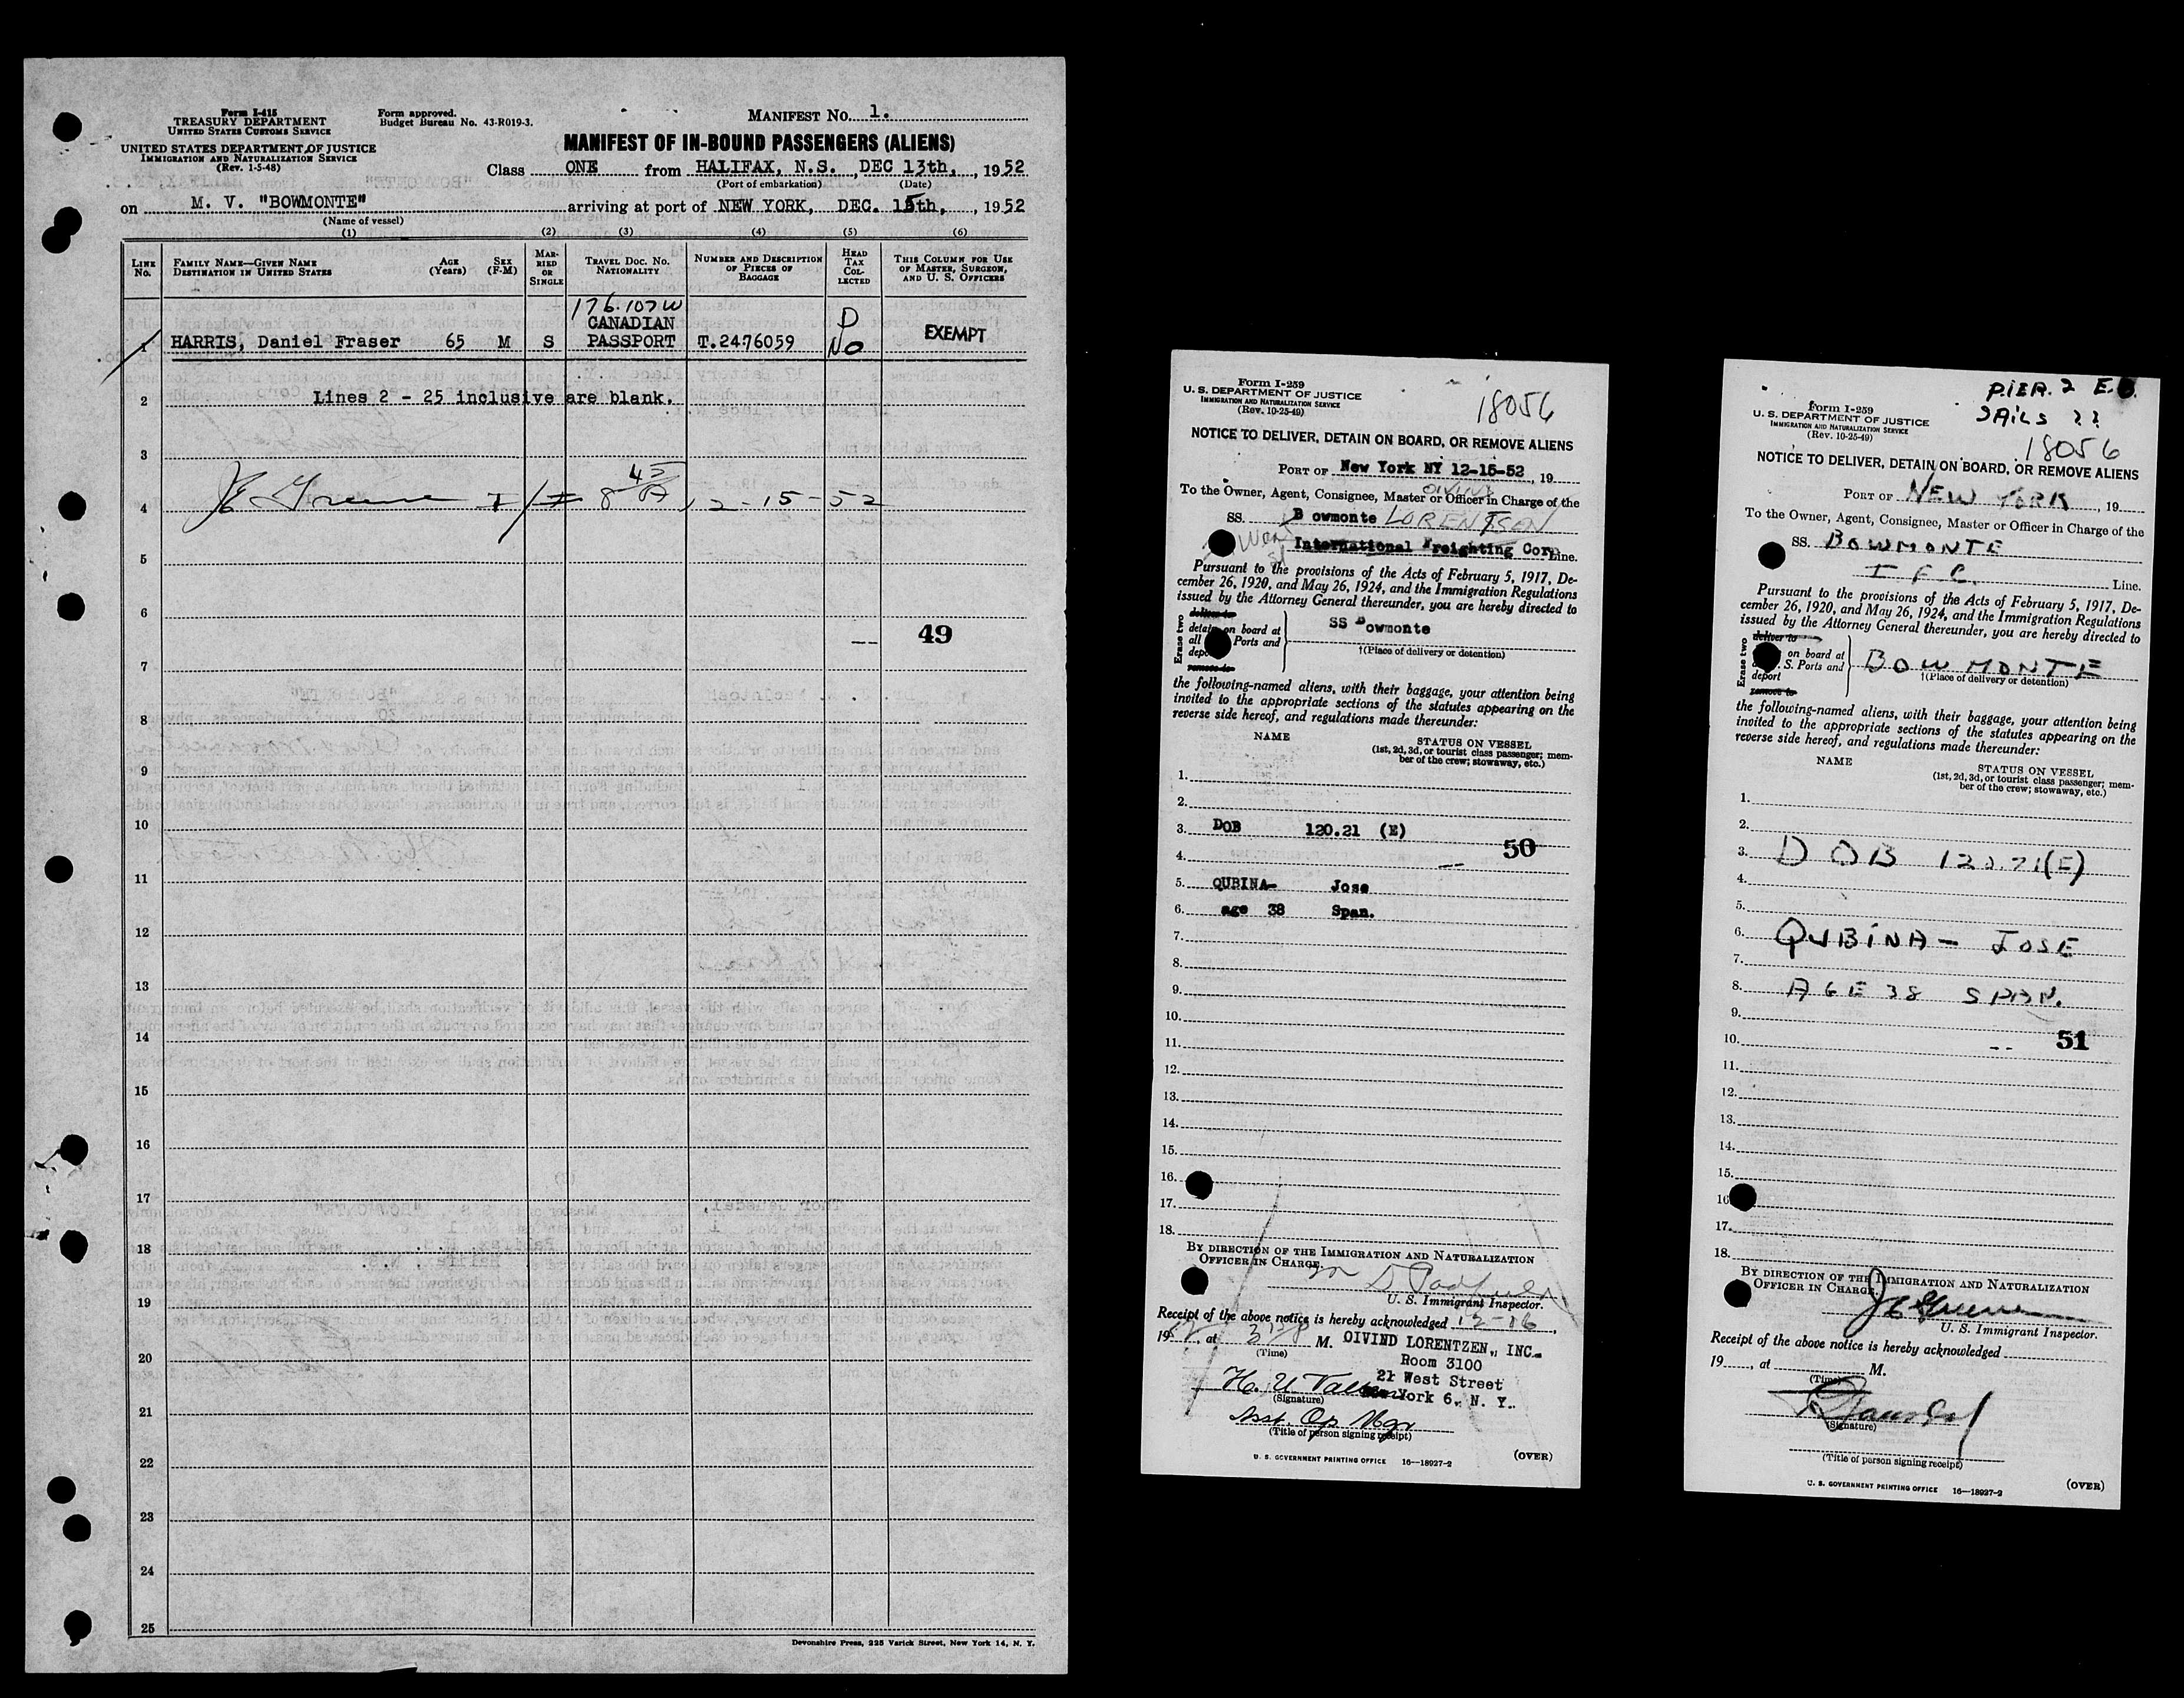 Form I-415
TREASURY DEPARTMENT
UNITED STATES CUSTOMS SERVICE
UNITED STATES DEPARTMENT OF JUSTICE
IMMIGRATION AND NATURALIZATION SERVICE
(Rev. 1-5-48)
Form approved.
Budget Bureau No. 43-R019-3.
MANIFEST NO. 1.
MANIFEST OF IN-BOUND PASSENGERS (ALIENS)
Class ONE from HALIFAX, N.S., DEC 13th, 1952
(Port of embarkation) (Date)
on M. V. "BOWMONTE" arriving at port of NEW YORK, DEC. 15th, 1952
(Name of vessel)
(1) (2) (3) (4) (5) (6)
LINE No.
FAMILY NAME—GIVEN NAME
DESTINATION IN UNITED STATES
AGE (Years)
SEX (F-M)
MARRIED OR SINGLE
TRAVEL DOC. NO.
NATIONALITY
NUMBER AND DESCRIPTION OF PIECES OF BAGGAGE
HEAD TAX COLLECTED
THIS COLUMN FOR USE OF MASTER, SURGEON, AND U. S. OFFICERS
176.107W
CANADIAN D
1 HARRIS, Daniel Fraser 65 M S PASSPORT T.2476059 NO EXEMPT
2 Lines 2 - 25 inclusive are blank.
3
4 12-15-52
5
6
-- 49
7
8
9
10
11
12
13
14
15
16
17
18
19
20
21
22
23
24
25
Devonshire Press, 225 Varick Street, New York 14, N. Y.
Form I-259
U. S. DEPARTMENT OF JUSTICE
IMMIGRATION AND NATURALIZATION SERVICE
(Rev. 10-25-49)
18056
NOTICE TO DELIVER, DETAIN ON BOARD, OR REMOVE ALIENS
PORT OF New York NY 12-15-52, 19
To the Owner, Agent, Consignee, Master or Officer in Charge of the
OIVIND
SS. Bowmonte LORENTSEN
International Freighting Corp Line.
Pursuant to the provisions of the Acts of February 5, 1917, De-
cember 26, 1920, and May 26, 1924, and the Immigration Regulations
issued by the Attorney General thereunder, you are hereby directed to
Erase two
deliver to
detain on board at
all Ports and
depo
remove to
SS Bowmonte
†(Place of delivery or detention)
the following-named aliens, with their baggage, your attention being
invited to the appropriate sections of the statutes appearing on the
reverse side hereof, and regulations made thereunder:
NAME STATUS ON VESSEL
(1st, 2d, 3d, or tourist class passenger; mem-
ber of the crew; stowaway, etc.)
1.
2.
3. DOB 120.21 (E)
4. -- 50
5. QUBINA- Jose
6. age 38 Span.
7.
8.
9.
10.
11.
12.
13.
14.
15.
16.
17.
18.
BY DIRECTION OF THE IMMIGRATION AND NATURALIZATION
OFFICER IN CHARGE.
U. S. Immigrant Inspector.
Receipt of the above notice is hereby acknowledged 12-16,
19 at M. OIVIND LORENTZEN, INC.
(Time)
Room 3100
21 West Street
New York 6, N. Y.
(Signature)
Asst. Op Mgr
(Title of person signing receipt)
U. S. GOVERNMENT PRINTING OFFICE 16—18927-2 (OVER)
PIER. 2 E.B.
SAILS ??
Form I-259
U. S. DEPARTMENT OF JUSTICE
IMMIGRATION AND NATURALIZATION SERVICE
(Rev. 10-25-49)
18056
NOTICE TO DELIVER, DETAIN ON BOARD, OR REMOVE ALIENS
PORT OF NEW YORK, 19
To the Owner, Agent, Consignee, Master or Officer in Charge of the
SS. BOWMONTE
I F C. Line.
Pursuant to the provisions of the Acts of February 5, 1917, De-
cember 26, 1920, and May 26, 1924, and the Immigration Regulations
issued by the Attorney General thereunder, you are hereby directed to
Erase two
deliver to
on board at
S. Ports and
deport
remove to
BOWMONTE
†(Place of delivery or detention)
the following-named aliens, with their baggage, your attention being
invited to the appropriate sections of the statutes appearing on the
reverse side hereof, and regulations made thereunder:
NAME STATUS ON VESSEL
(1st, 2d, 3d, or tourist class passenger; mem-
ber of the crew; stowaway, etc.)
1.
2.
3. DOB 120.21(E)
4.
5.
6. QUBINA- JOSE
7.
8. AGE 38 SPAN.
9.
10. -- 51
11.
12.
13.
14.
15.
16
17.
18.
BY DIRECTION OF THE IMMIGRATION AND NATURALIZATION
OFFICER IN CHARGE.
U. S. Immigrant Inspector.
Receipt of the above notice is hereby acknowledged
19, at M.
(Time)
(Signature)
(Title of person signing receipt)
U. S. GOVERNMENT PRINTING OFFICE 16—18927-2 (OVER)